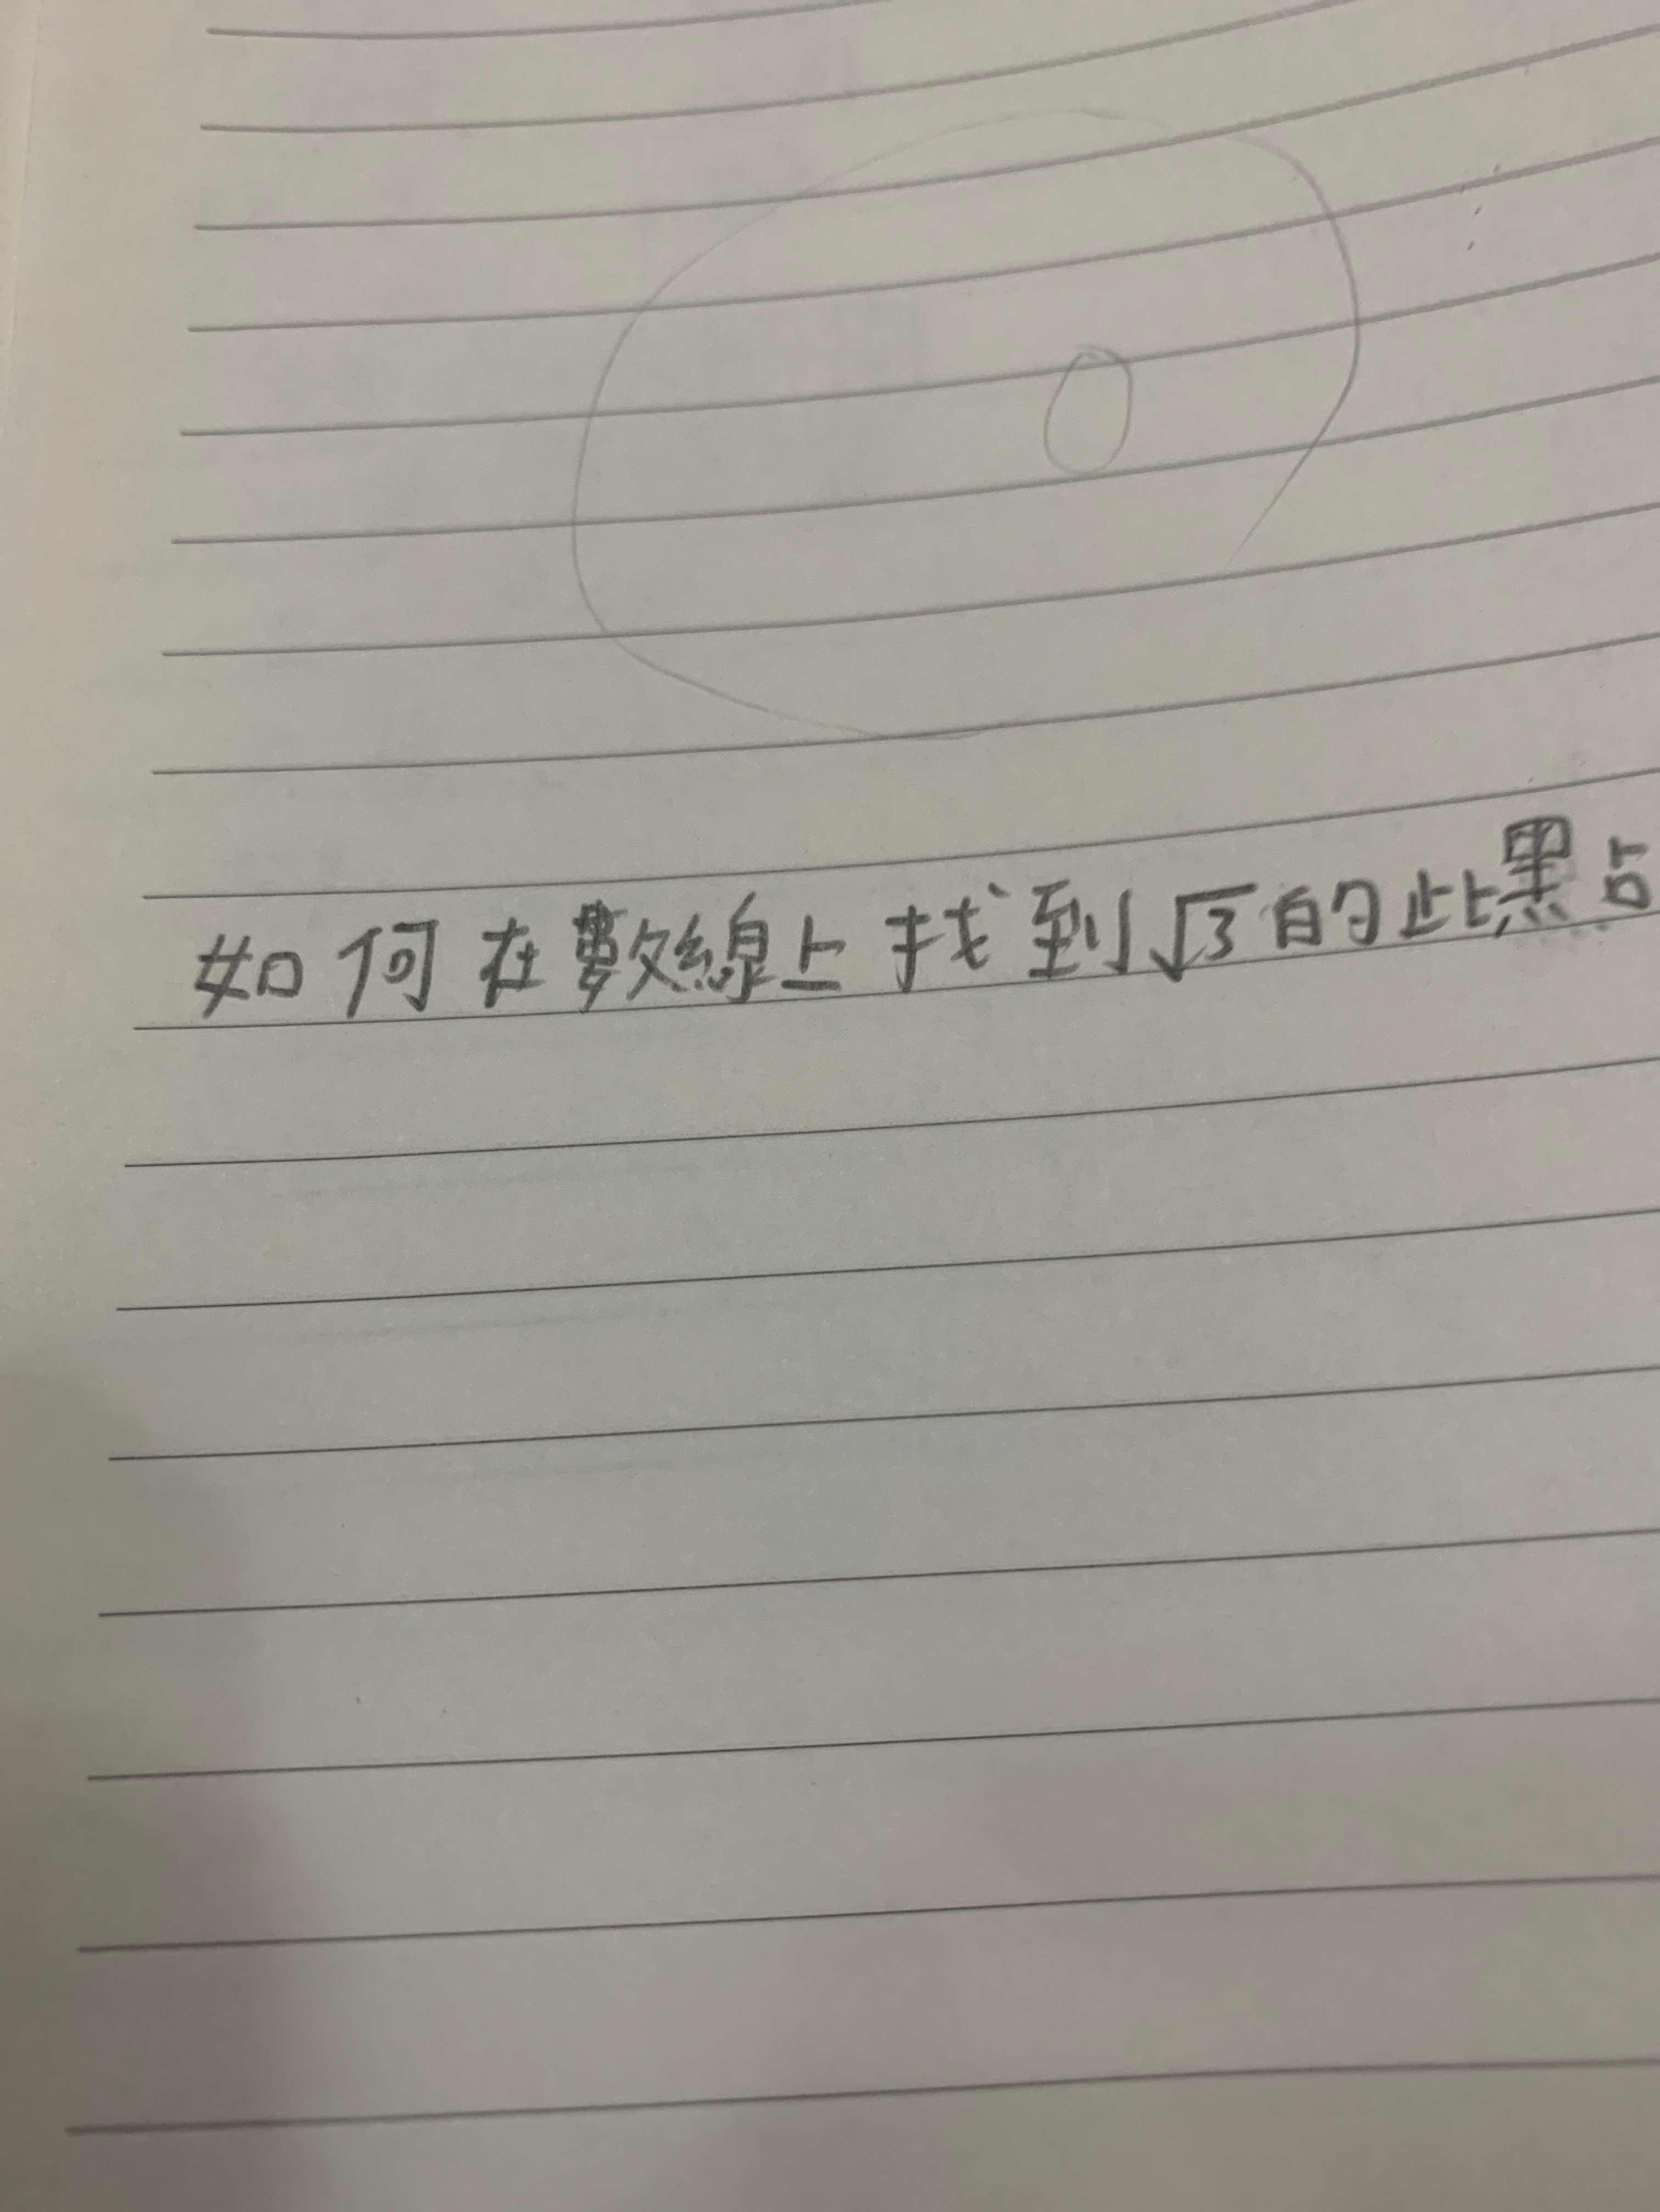 如何在數線上找到√3的此黑